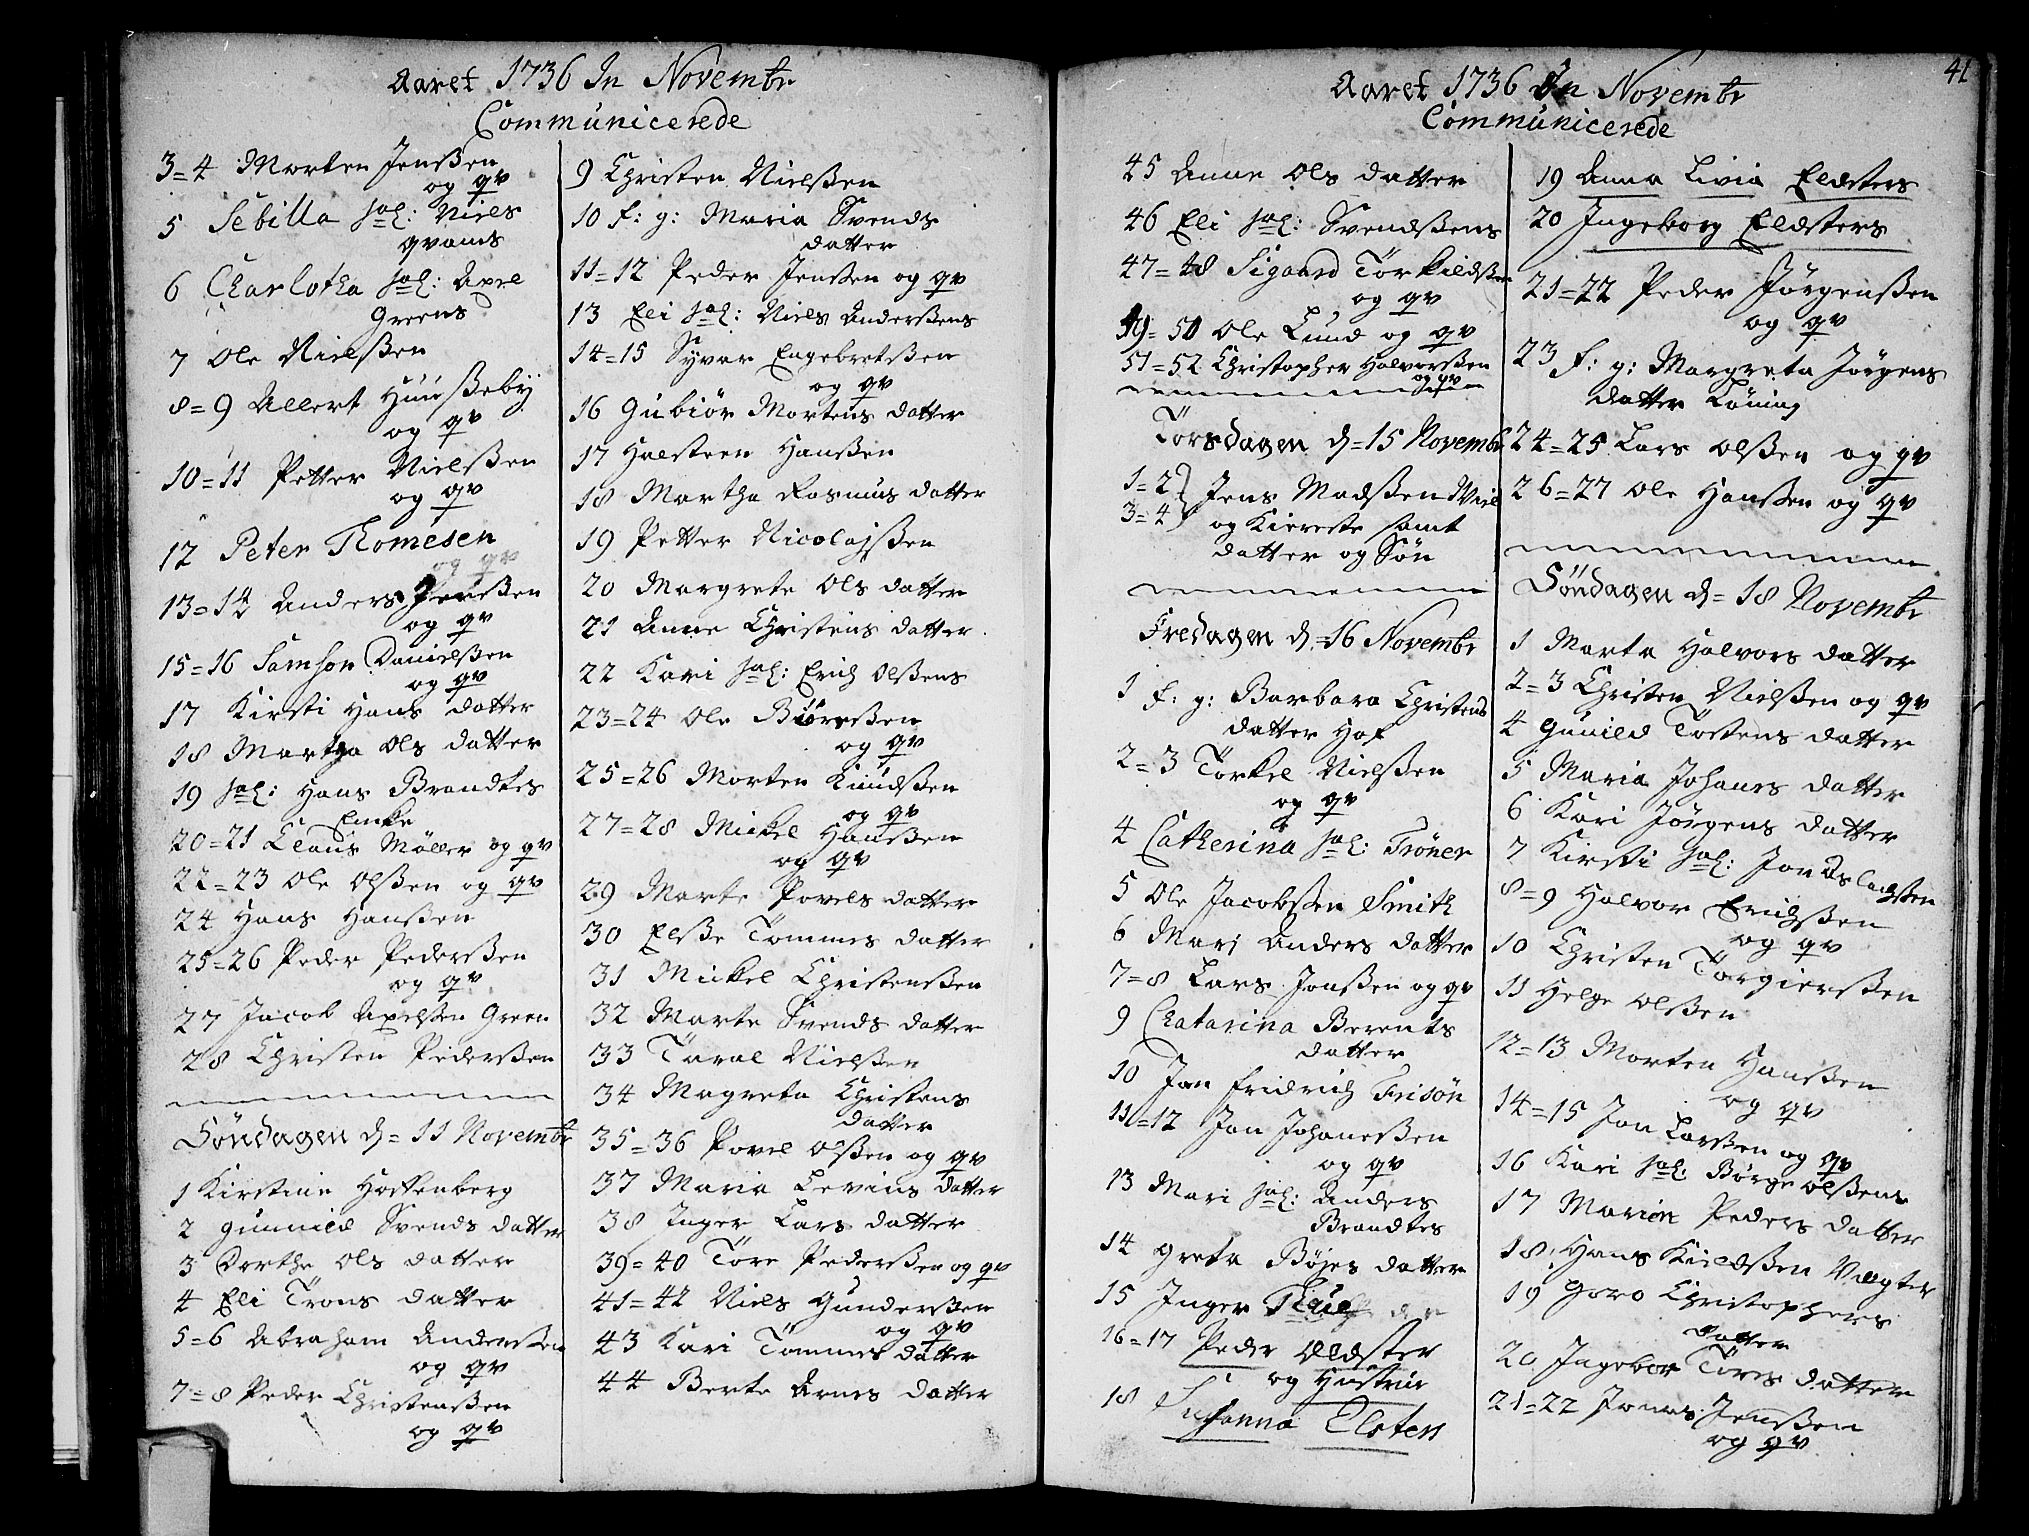 Aaret 1736 In Novembr
Communicerede
3=4 Morten Jensßen
og qv
5 Sebilla sal: Niels
qvams
6 Charlotha sal: Axel
Greens
7 Ole Nielsßen
8=9 Allert Huusßebÿ
og qv
10=11 Petter Nielsßen
og qv
12 Peter Thomesen
og qv
13=14 Anders Jensßen
og qv
15=16 Samson Danielsßen
og qv
17 Kirsti Hans datter
18 Martha Ols datter
19 sal: Hans Brandtes
Enke
20=21 Claus Møller og qv
22=23 Ole Olsßen og qv
24 Hans Hansßen
25=26 Peder Pedersßen
og qv
27 Jacob Axelsßen Green
28 Christen Pedersßen
Söndagen d= 11 Novembr
1 Kirstine Hortenberg
2 Gunnild Svends datter
3 Dorthe Ols datter
4 Eli Trons datter
5=6 Abraham Andersßen
og qv
7=8 Peder Christensßen
og qv
9 Christen Nielsßen
10 f: g: Maria Svends
datter
11=12 Peder Jensßen og qv
13 Eli sal: Niels Andersßens
14=15 Syver Engebretsßen
og qv
16 Gubiør Mortens datter
17 Halsteen Hansßen
18 Martha Rasmus datter
19 Petter Nicolajsßen
20 Margrete Ols datter
21 Anne Christens datter
22 Kari sal: Erich Olsßens
23=24 Ole Biörnsßen
og qv
25=26 Morten Knudsßen
og qv
27=28 Mickel Hansßen
og qv
29 Marte Povels datter
30 Elsße Tommes datter
31 Mickel Christensßen
32 Marte Svends datter
33 Taral Nielsßen
34 Magreta Christens
datter
35=36 Povel Olsßen og qv
37 Maria Levins datter
38 Inger Lars datter
39=40 Tore Pedersßen og qv
41=42 Niels Gundersßen
og qv
43 Kari Tommes datter
44 Berte Arnes datter
41
Aaret 1736 In Novembr
Communicerede
45 Anne Ols datter
46 Eli sal: Svendsßens
47=48 Sigaard Torkildsßen
og qv
49=50 Ole Lund og qv
51=52 Christopher Halvorsßen
og qv
Torsdagen d=15 Novembr
1=2 } Jens Madsßen Wiel
3=4 } og Kiereste samt
datter og Søn
Fredagen d=16 Novembr
1 f: g: Barbara Christens
datter Hof
2=3 Torkel Nielsßen
og qv
4 Catherina sal: Trøner
5 Ole Jacobsßen Smith
6 Mari Anders datter
7=8 Lars Jonsßen og qv
9 Chatarina Berents
datter
10 Jan fridrich Frisön
11=12 Jan Johanesßen
og qv
13 Mari sal: Anders
Brandtes
14 Greta Böjes datter
15 Inger
16=17 Peder Oldster
og Hustrue
18 Susanna Elsters
19 Anna Livia Eldsters
20 Ingeborg Eldsters
21=22 Peder Jörgensßen
og qv
23 f: g: Margreta Jörgens
datter Köning
24=25 Lars Olsßen og qv
26=27 Ole Hansßen og qv
Söndagen d= 18 Novembr
1 Marta Halvors datter
2=3 Christen Nielsßen og qv
4 Gunild Tostens datter
5 Maria Johans datter
6 Kari Jörgens datter
7 Kirsti sal: Jon Aslachsßen
8=9 Halvor Erichsßen
og qv
10 Christen Torgiersßen
11 Helge Olsßen
12=13 Morten Hansßen
og qv
14=15 Jon Larsßen og qv
16 Kari sal: Börge Olsßens
17 Marion Peders datter
18 Hans Kieldsßen Vægter
19 Goro Christophers
datter
20 Ingebor Tores datter
21=22 Jonas Jensßen
og qv